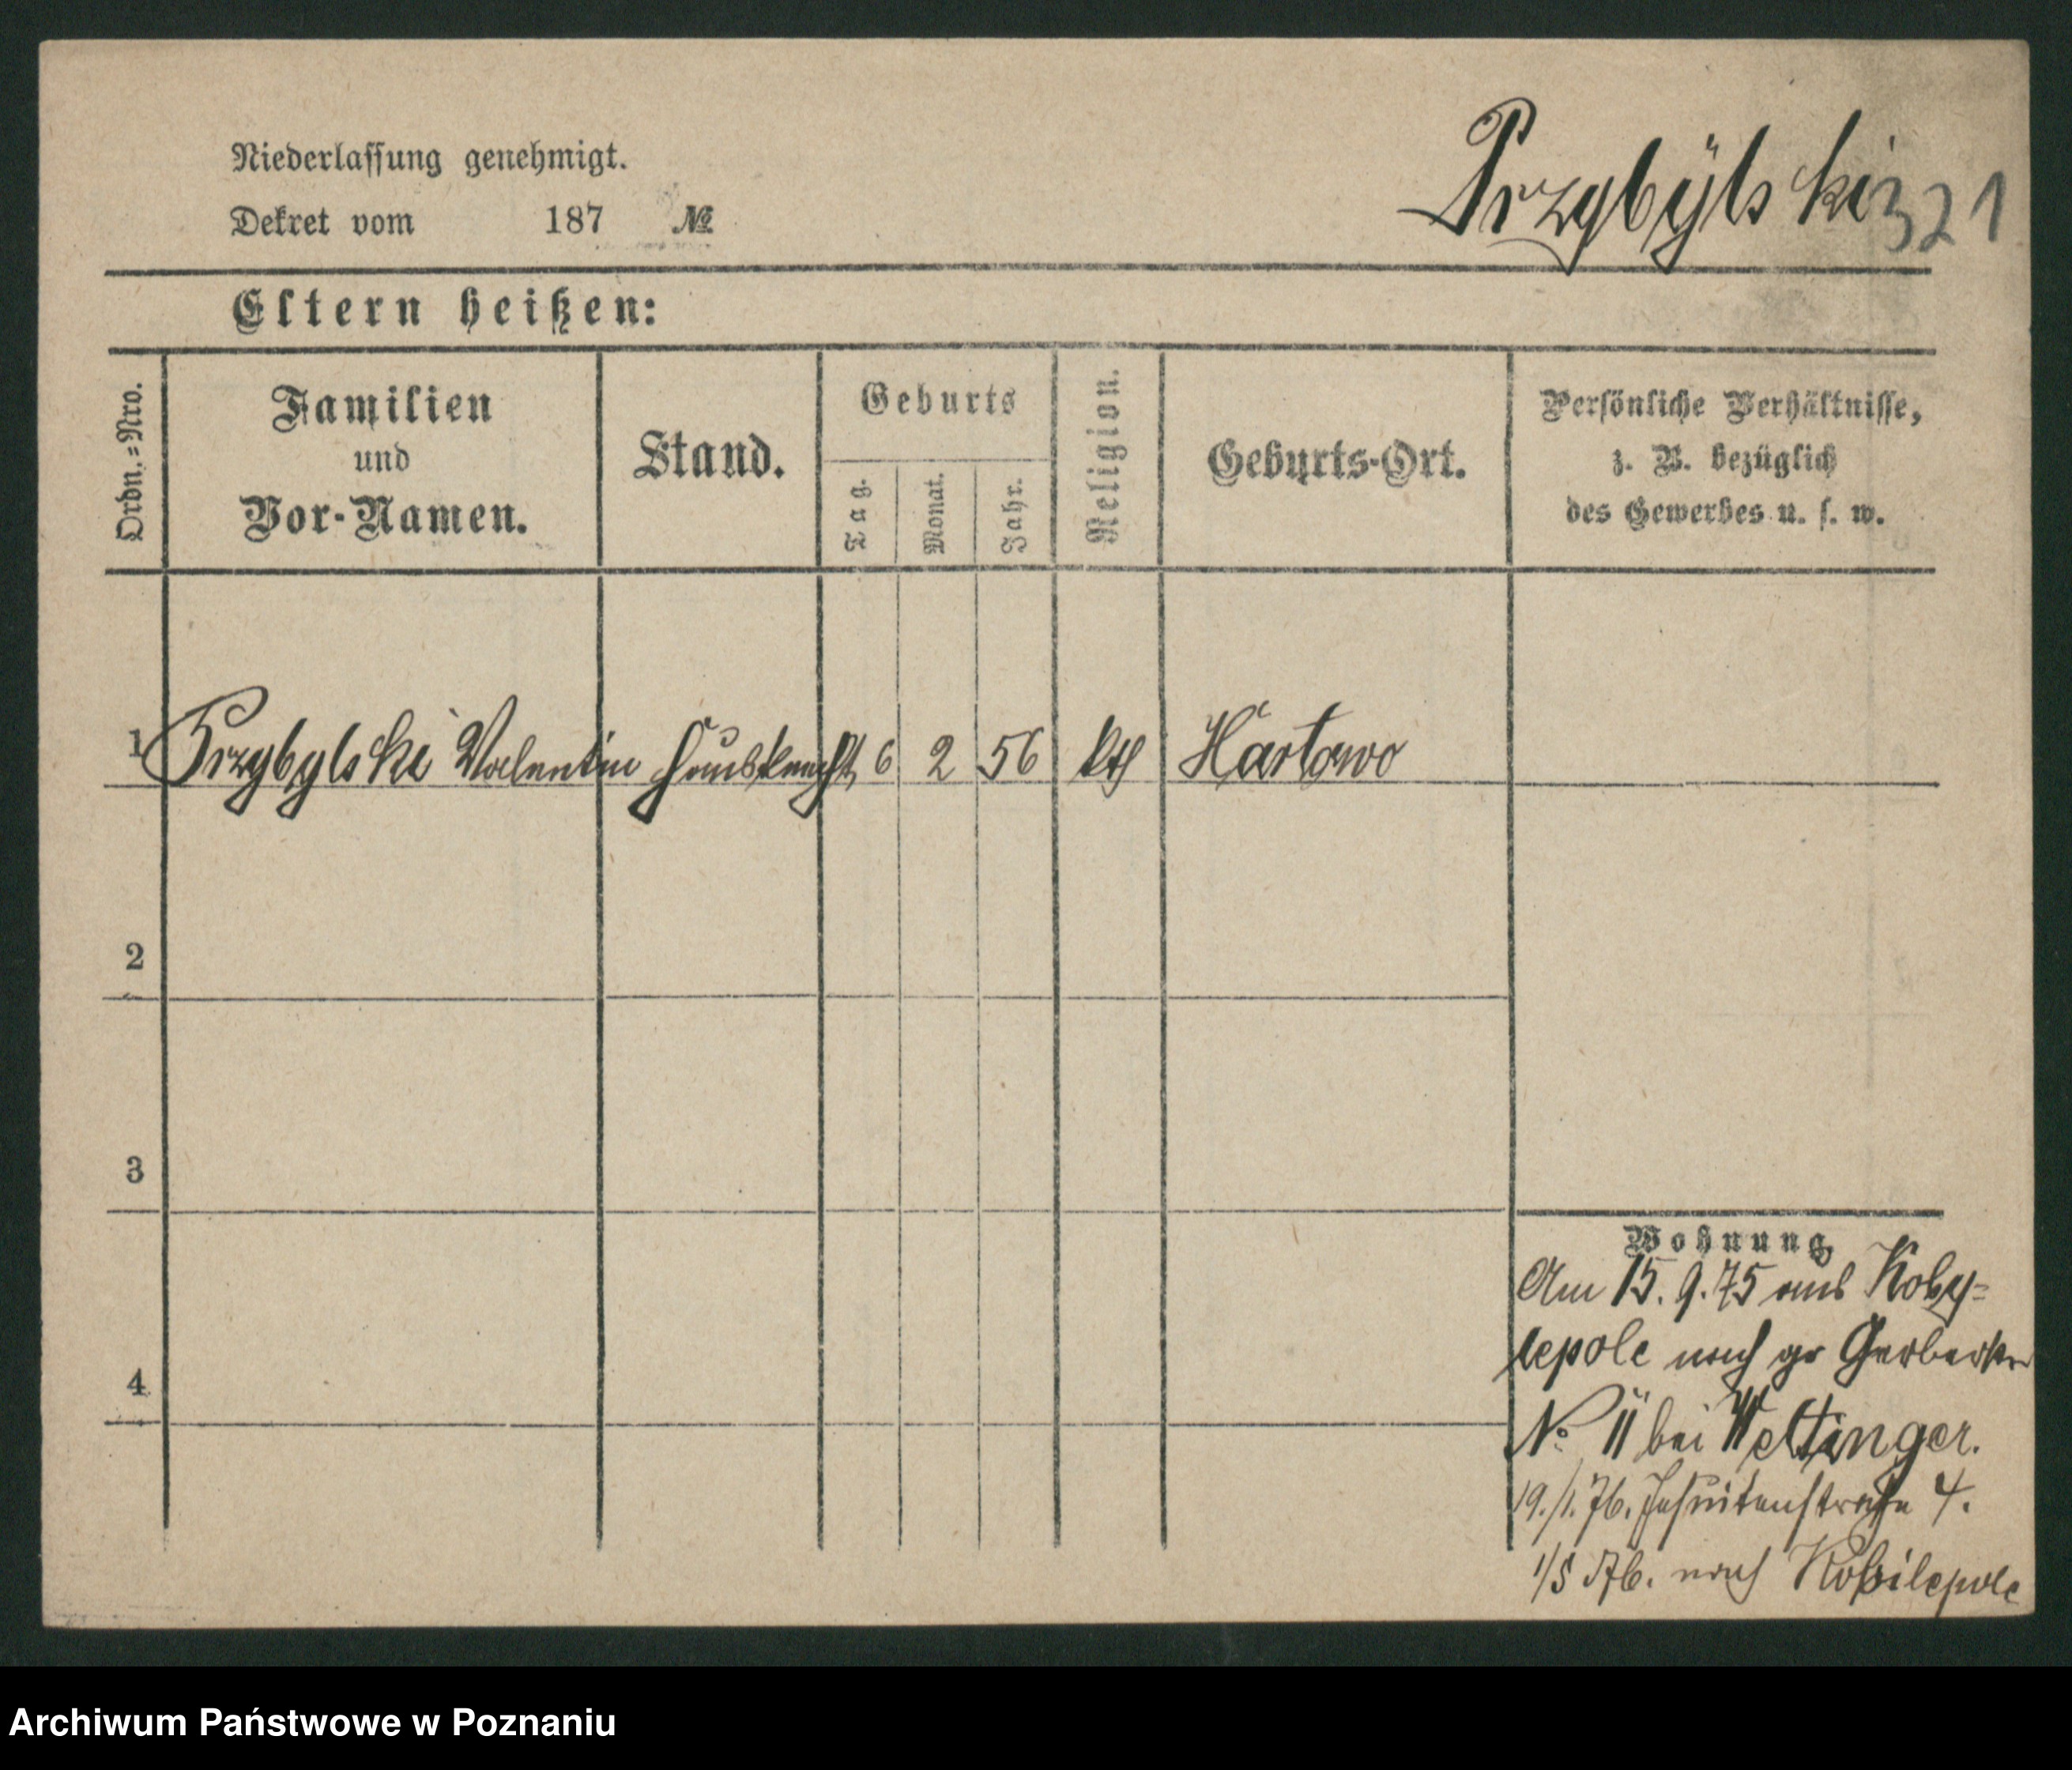 Niederlassung genehmigt.
Dekret vom 187 №
Przybylski 321
Eltern heißen:
Ordn.=Nro.
Familien
und
Vor-Namen.
Stand.
Geburts
Tag.
Monat.
Jahr.
Religion.
Geburts-Ort.
Persönliche Verhältnisse,
z. B. bezüglich
des Gewerbes u. s. w.
1 Przybylski Valentin Hausknecht 6 2 56 kth Hartowo
2
3
4
Wohnung
Am 15. 9. 75 aus Koby=
lepole nach gr Gerberstr
No 11 bei Weltinger.
19./1. 76. Jesuitenstraße 4.
1/5 76. nach Kobilepole
Archiwum Państwowe w Poznaniu